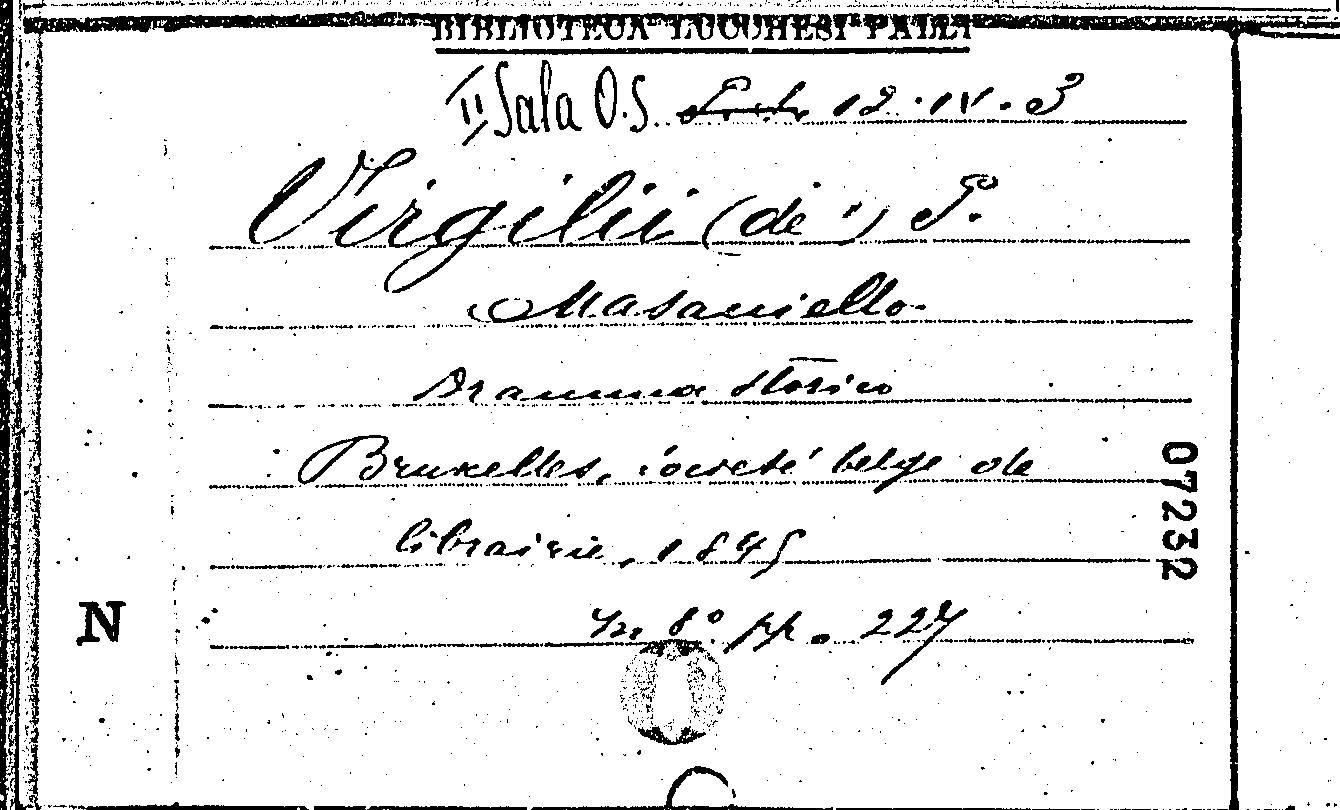 BIBLIOTECA LUCCHESI PALLI
II Sala O.S. 12.IV.3
Virgilii (de') P.
Masaniello
Dramma storico
Bruxelles, societé belge de
librairie, 1845
In 8° pp. 227
N
07232